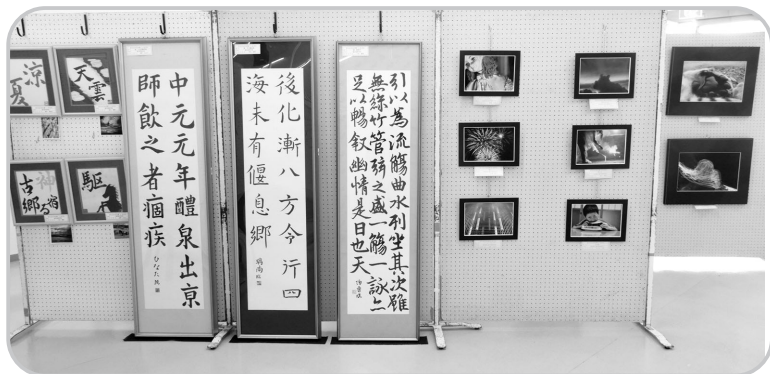 涼
夏
天雲
神宿る
古郷
駆
中元元年醴泉出京
師飲之者痼疾
後化漸八方令行四
海未有偃息郷
引以為流觴曲水列坐其次雖
無絲竹管弦之盛一觴一詠亦
足以暢叙幽情是日也天